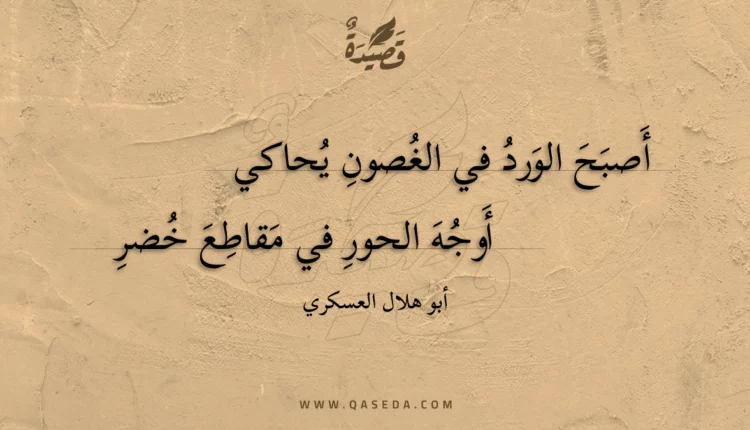 قَصِيدَةٌ
أَصبَحَ الوَردُ في الغُصونِ يُحاكي
أَوجُهَ الحورِ في مَقاطِعَ خُضرِ
أبو هلال العسكري
WWW.QASEDA.COM